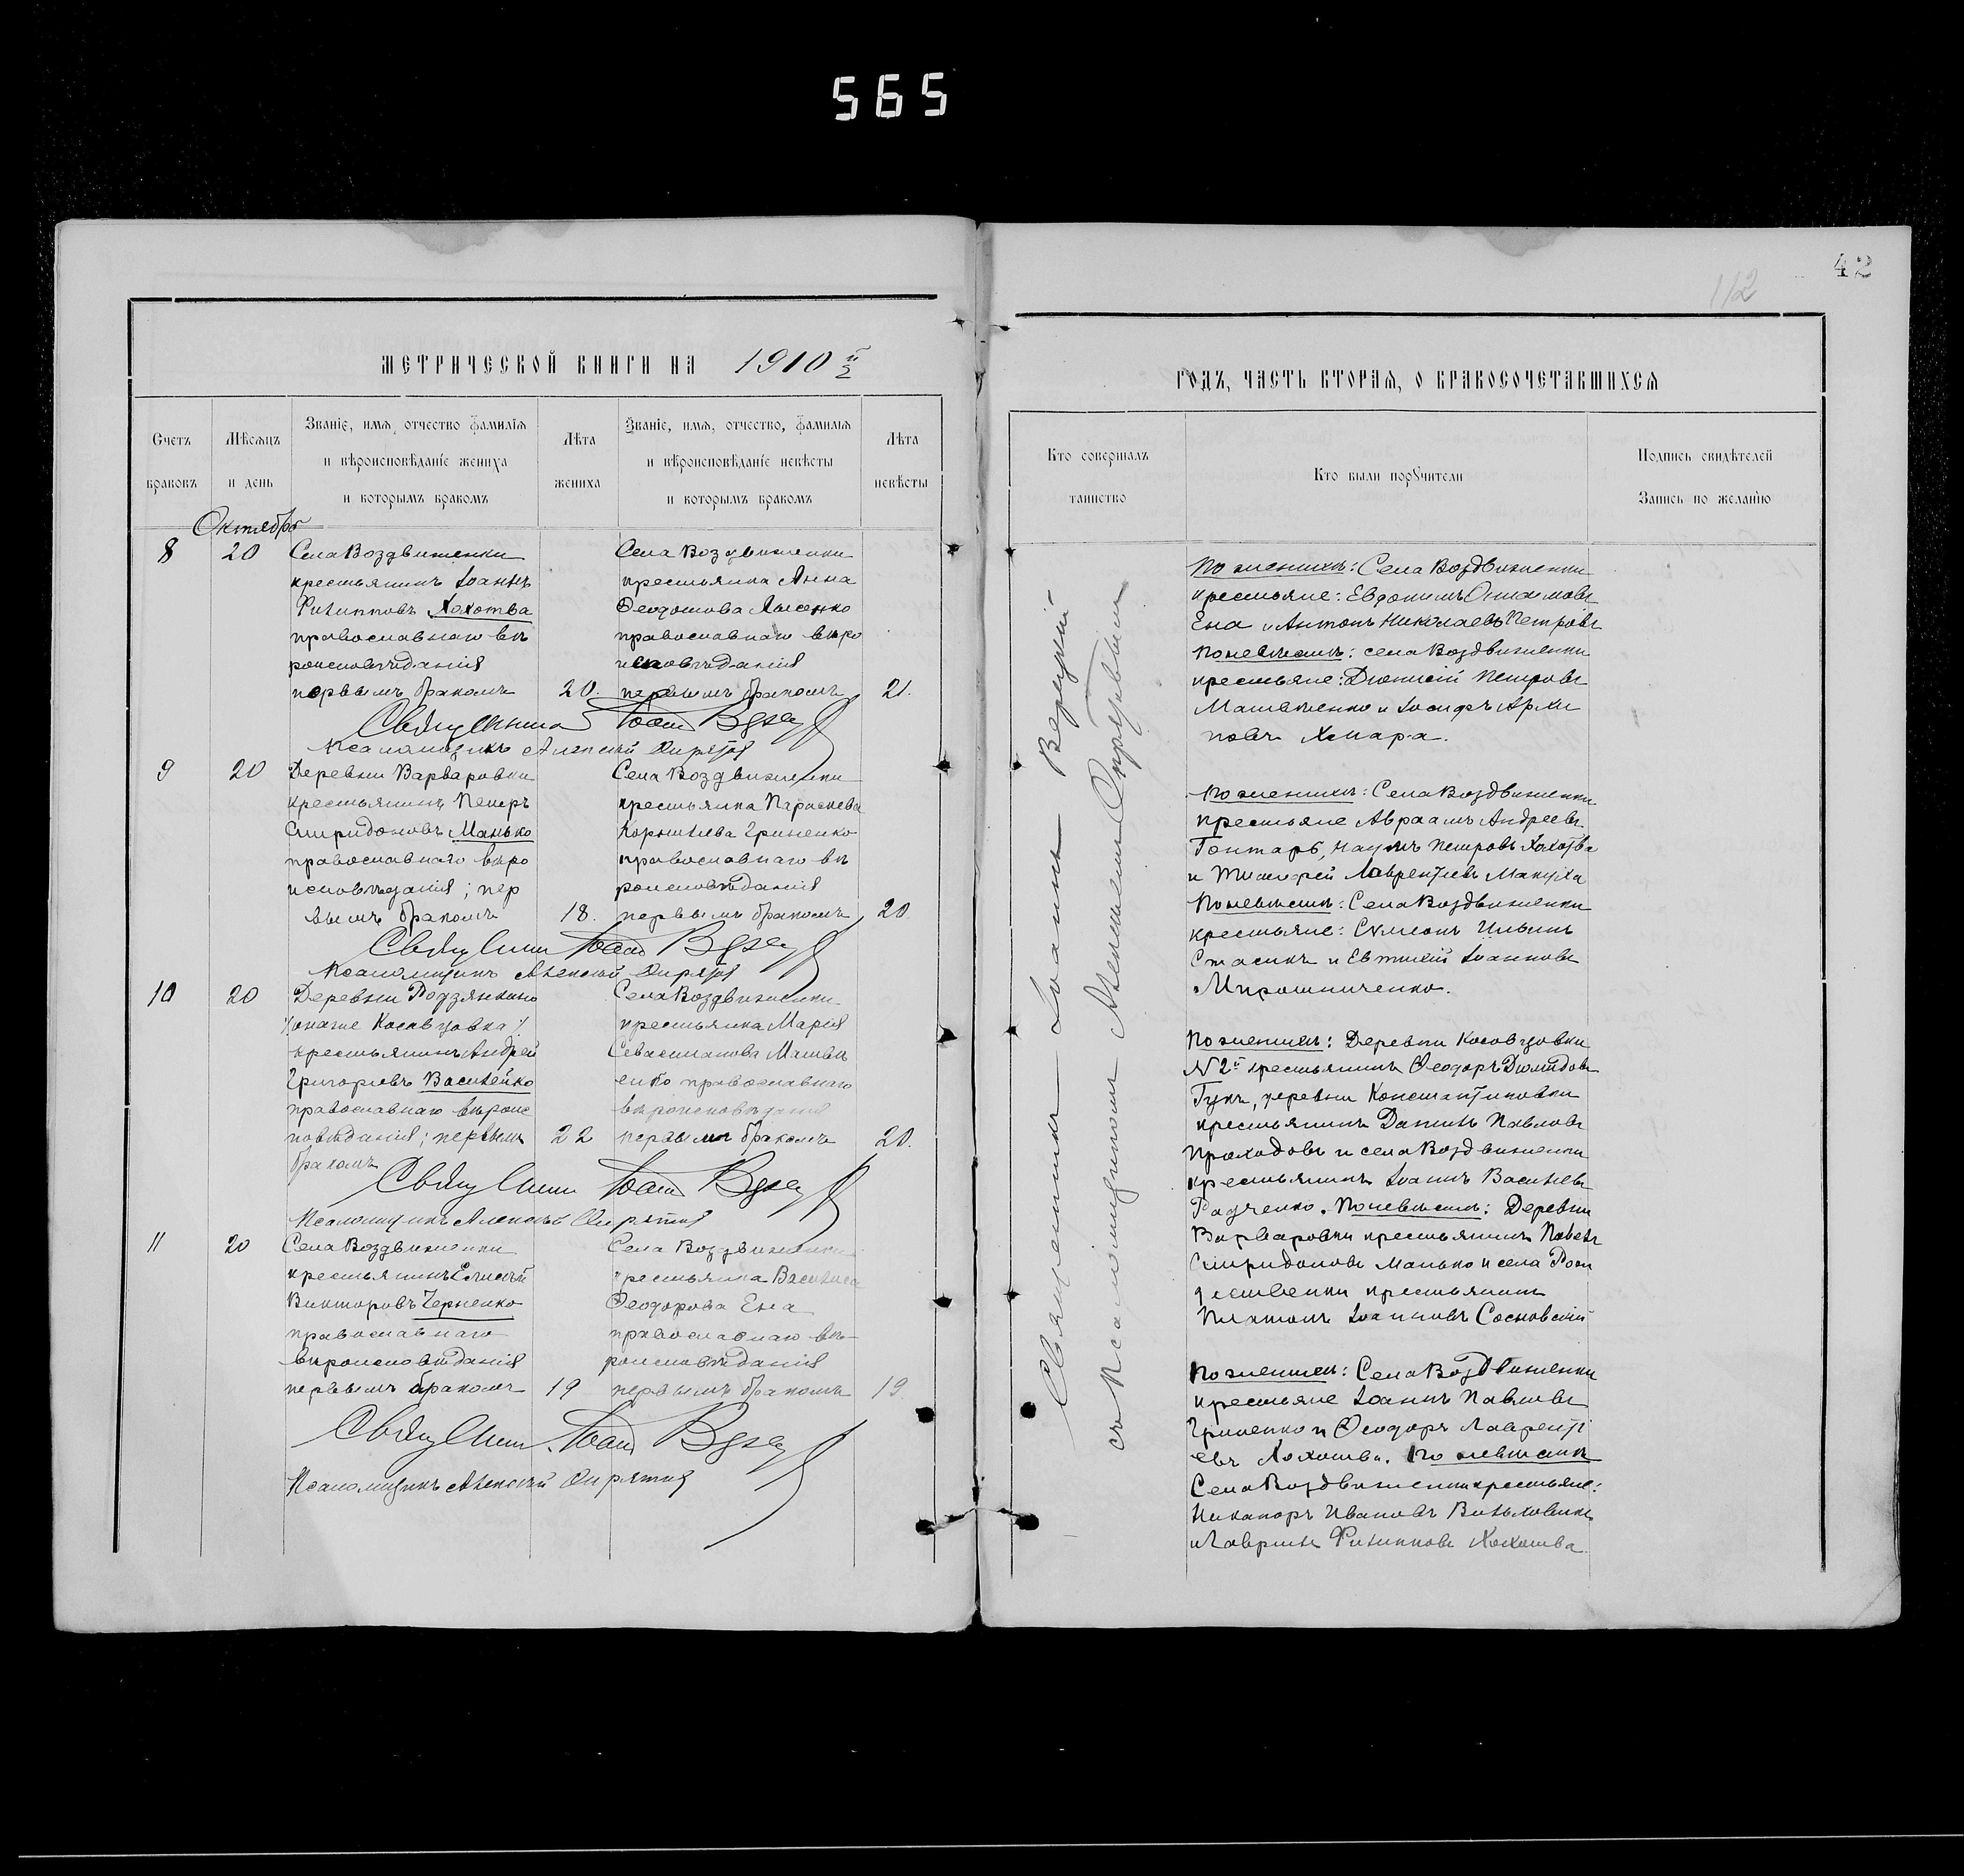 565
42
112
МЕТРИЧЕСКОЙ КНИГИ НА 1910 й
2
Счетъ браковъ
Мѣсяцъ и день
Званіе, имя, отчество фамилія и вѣроисповѣданіе жениха и которымъ бракомъ
Лѣта жениха
Званіе, имя, отчество, фамилія и вѣроисповѣданіе невѣсты и которымъ бракомъ
Лѣта невѣсты
Октябрь
8
20
Села Воздвиженки
крестьянинъ Іоаннъ
Филипповъ Хохотва
православнаго вѣ
роисповѣданія
первымъ бракомъ
20.
Села Воздвиженки
крестьянка Анна
Ѳеодотова Лысенко
православнаго вѣро
исповѣданія
первымъ бракомъ
21.
Священникъ Іоаннъ
Псаломщикъ Алексѣй
9
20
Деревни Варваровки
крестьянинъ Петръ
Спиридоновъ Манько
православнаго вѣро
исповѣданія; пер
вымъ бракомъ
18.
Села Воздвиженки
крестьянка Параскева
Корнилева Гриненко
православнаго вѣ
роисповѣданія
первымъ бракомъ
20.
Священникъ Іоаннъ
Псаломщикъ Алексѣй
10
20
Деревни Родзянкино
/онаже Косивцовка/
крестьянинъ Андрей
Григорьевъ Василейко
православнаго вѣроис
повѣданія; первымъ
бракомъ
22
Села Воздвиженки
крестьянка Марія
Севастіанова Матвѣ
енко православнаго
вѣроисповѣданія
первымъ бракомъ
20.
Священникъ Іоаннъ
Псаломщикъ Алексѣй
11
20
Села Воздвиженки
крестьянинъ Елисей
Викторовъ Черненко
православнаго
вѣроисповѣданія
первымъ бракомъ
19
Села Воздвиженки
крестьянка Василиса
Ѳеодорова Ена
православнаго вѣ-
роисповѣданія
первымъ бракомъ
19.
Священникъ Іоаннъ
Псаломщикъ Алексѣй
ГОДЪ, ЧАСТЬ ВТОРАЯ, О БРАКОСОЧЕТАВШИХСЯ
Кто совершалъ таинство
Кто были поручители
Подпись свидѣтелей Запись по желанію
Священникъ Іоаннъ
съ Псаломщикомъ Алексѣемъ
По женихѣ: Села Воздвиженки
крестьяне: Евдокимъ
Ена и Антонъ Николаевъ Петровъ
По невѣстѣ: села Воздвиженки
крестьяне: Діонисій Петровъ
Матвѣенко и Іосифъ Архи
повъ Хмара.
По женихѣ: Села Воздвиженки
крестьяне Авраамъ Андреевъ
Гонтарь, Наумъ Петровъ Хохотва
и Тимофей Лаврентіевъ Макуха
По невѣстѣ: Села Воздвиженки
крестьяне: Сѵмеонъ Ильинъ
Стасикъ и Евтихій Іоанновъ
Мирошниченко.
По женихѣ: Деревни Косовцовки
№ 2й крестьянинъ Ѳеодоръ
Гукъ, деревни Константиновки
крестьянинъ Даніилъ Павловъ
Проходовъ и села Воздвиженки
крестьянинъ Іоаннъ Васильевъ
Радченко. По невѣстѣ: Деревни
Варваровки крестьянинъ Павелъ
Спиридоновъ Манько и села Рож
дественки крестьянинъ
Платонъ Іоанновъ Сосновскій
По женихѣ: Села Воздвиженки
крестьяне Іоаннъ Павловъ
Гриненко и Ѳеодоръ Лавренті
евъ Хохотва. По невѣстѣ
Села Воздвиженки крестьяне:
Никаноръ Ивановъ
и Гавріилъ Филипповъ Хохотва